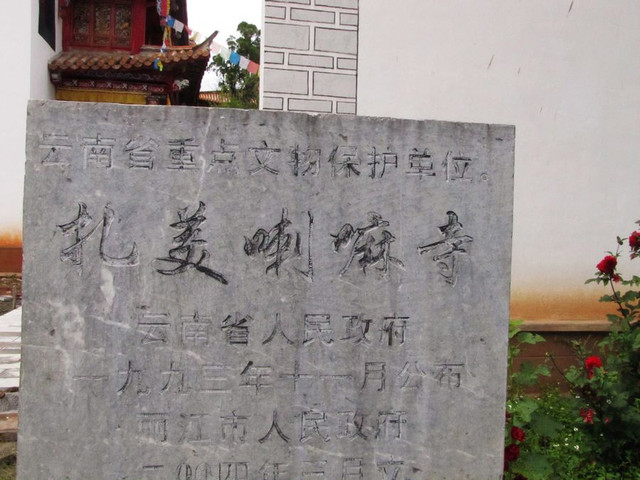 云南省重点文物保护单位
扎美喇嘛寺
云南省人民政府
一九九三年十一月公布
丽江市人民政府
二00四年三月立